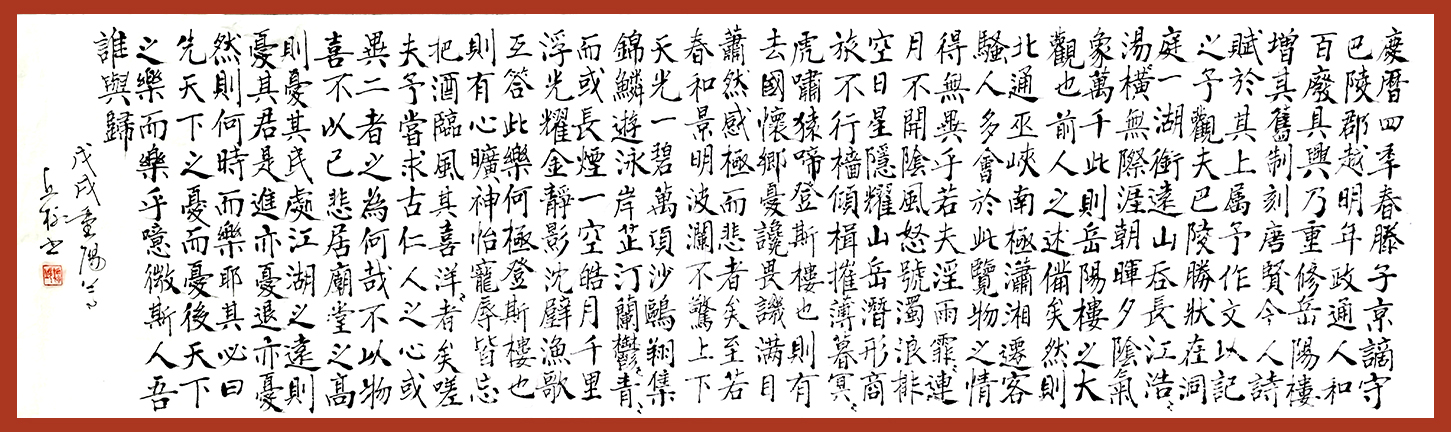 慶曆四年春滕子京謫守
巴陵郡越明年政通人和
百廢具興乃重修岳陽樓
增其舊制刻唐賢今人詩
賦於其上屬予作文以記
之予觀夫巴陵勝狀在洞
庭一湖銜遠山吞長江浩〻
湯〻橫無際涯朝暉夕陰氣
象萬千此則岳陽樓之大
觀也前人之述備矣然則
北通巫峽南極瀟湘遷客
騷人多會於此覽物之情
得無異乎若夫淫雨霏〻連
月不開陰風怒號濁浪排
空日星隱耀山岳潛形商
旅不行檣傾楫摧薄暮冥〻
虎嘯猿啼登斯樓也則有
去國懷鄉憂讒畏譏滿目
蕭然感極而悲者矣至若
春和景明波瀾不驚上下
天光一碧萬頃沙鷗翔集
錦鱗遊泳岸芷汀蘭鬱〻青〻
而或長煙一空皓月千里
浮光耀金靜影沈璧漁歌
互答此樂何極登斯樓也
則有心曠神怡寵辱皆忘
把酒臨風其喜洋〻者矣嗟
夫予嘗求古仁人之心或
異二者之為何哉不以物
喜不以己悲居廟堂之高
則憂其民處江湖之遠則
憂其君是進亦憂退亦憂
然則何時而樂耶其必曰
先天下之憂而憂後天下
之樂而樂乎噫微斯人吾
誰與歸
戊戌重陽